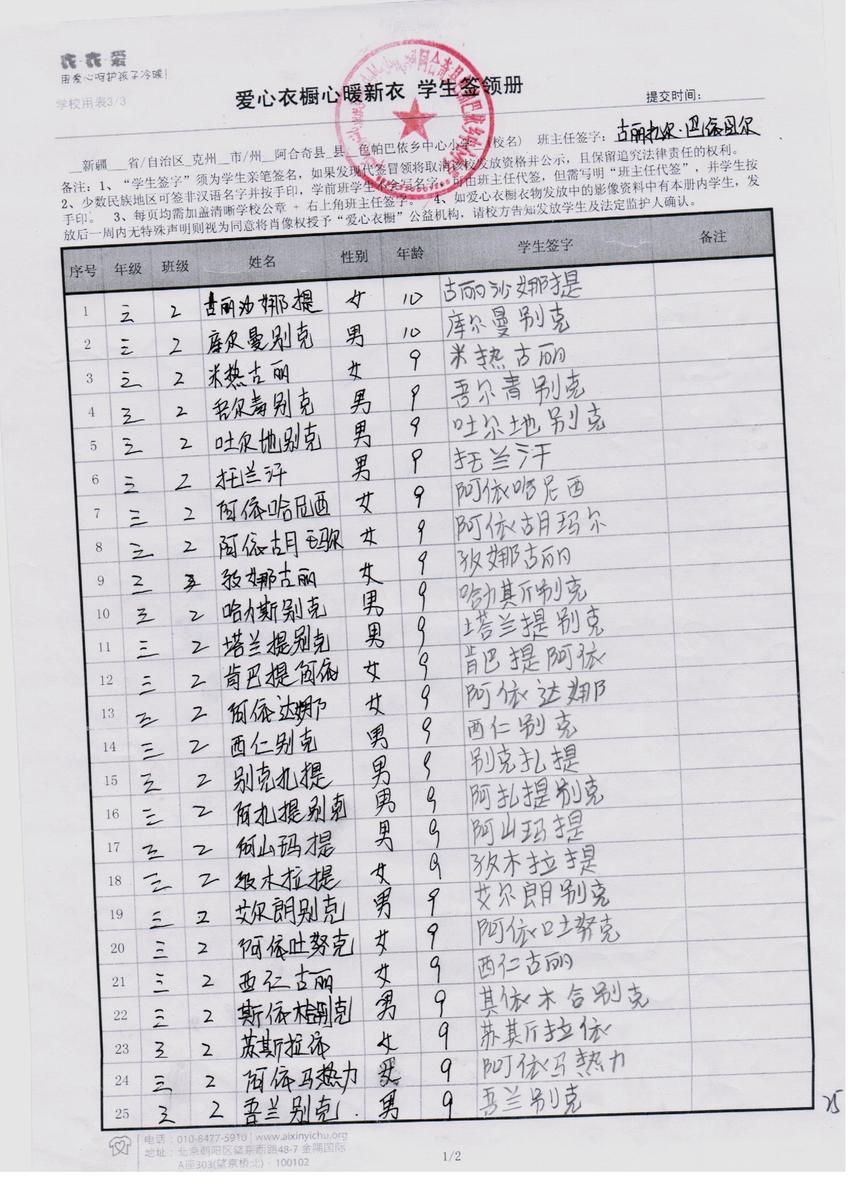 衣·衣·爱
用爱心呵护孩子冷暖!
学校用表3/3
爱心衣橱心暖新衣 学生签领册
提交时间:
新疆 省/自治区 克州 市/州 阿合奇县 县 色帕巴依乡中心小学 (校名) 班主任签字:古丽扎尔·巴依
备注:1、“学生签字”须为学生亲笔签名,如果发现代签冒领将取消该校发放资格并公示,且保留追究法律责任的权利。
2、少数民族地区可签非汉语名字并按手印,学前班学生不会写名字,可由班主任代签,但需写明“班主任代签”,并学生按
手印。 3、每页均需加盖清晰学校公章 + 右上角班主任签字。 4、如爱心衣橱衣物发放中的影像资料中有本册内学生,发
放后一周内无特殊声明则视为同意将肖像权授予“爱心衣橱”公益机构,请校方告知发放学生及法定监护人确认。
序号 年级 班级 姓名 性别 年龄 学生签字 备注
1 三 2 古丽沙娜提 女 10 古丽沙娜提
2 三 2 库尔曼别克 男 10 库尔曼别克
3 三 2 米热古丽 女 9 米热古丽
4 三 2 吾尔青别克 男 9 吾尔青别克
5 三 2 吐尔地别克 男 9 吐尔地别克
6 三 2 托兰汗 男 9 托兰汗
7 三 2 阿依哈尼西 女 9 阿依哈尼西
8 三 2 阿依古月玛尔 女 9 阿依古月玛尔
9 三 娜古丽 女 9 娜古丽
10 三 2 哈力斯别克 男 9 哈力其斤别克
11 三 2 塔兰提别克 男 9 塔兰提别克
12 三 2 肯巴提阿依 女 9 肯巴提阿依
13 三 2 阿依达娜 女 9 阿依达娜
14 三 2 西仁别克 男 9 西仁别克
15 三 2 别克扎提 男 9 别克扎提
16 三 2 阿扎提别克 男 9 阿扎提别克
17 三 2 阿山玛提 男 9 阿山玛提
18 三 2 木拉提 女 9 木拉提
19 三 2 艾尔朗别克 男 9 艾尔朗别克
20 三 2 阿依吐努克 女 9 阿依吐努克
21 三 2 西仁古丽 女 9 西仁古丽
22 三 2 斯依木别克 男 9 其依木合别克
23 三 2 苏斯拉依 女 9 苏其斤拉依
24 三 2 阿依马热力 9 阿依马热力
25 三 2 吾兰别克 男 9 吾兰别克
25
电话:010-8477-5910 | www.aixinyichu.org
地址:北京朝阳区望京西路48-7 金隅国际
A座303(望京桥北)·100102
1/2